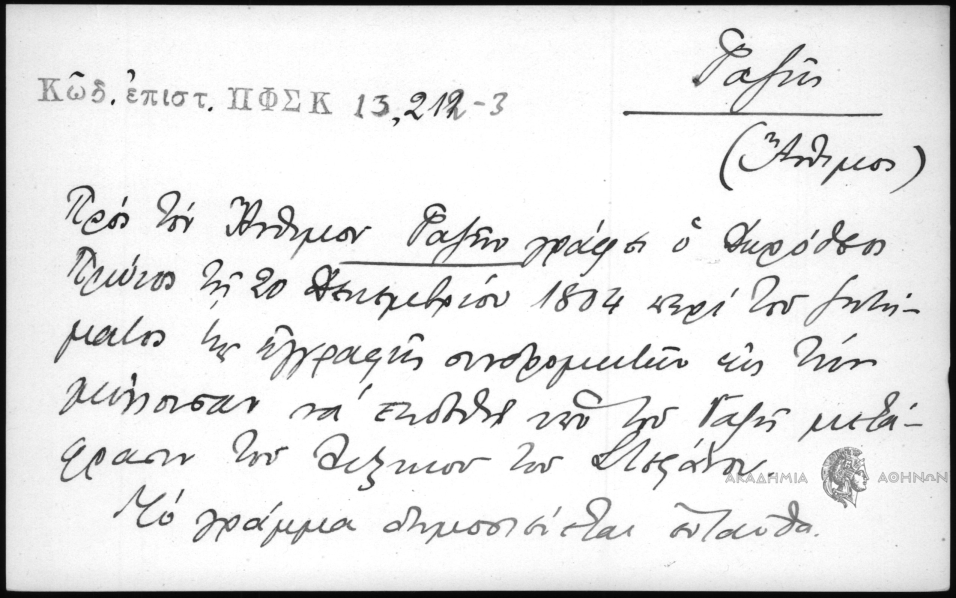 Κῶδ. ἐπιστ. ΠΦΣΚ 13, 212-3
Γαζῆς
(Ἄνθιμος)
Πρός τόν Ἄνθιμον Γαζῆν γράφει ὁ Δωρόθεος
Πρώιος τῇ 20 Δεκεμβρίου 1804 περί τοῦ ζητή-
ματος τῆς ἐγγραφῆς συνδρομητῶν εἰς τήν
μέλλουσαν νά ἐκδοθῇ ὑπό τοῦ Γαζῆ μετά-
φρασιν τοῦ Λεξικοῦ τοῦ
Τό γράμμα δημοσιεύεται ἐνταῦθα.
ΑΚΑΔΗΜΙΑ ΑΘΗΝΩΝ